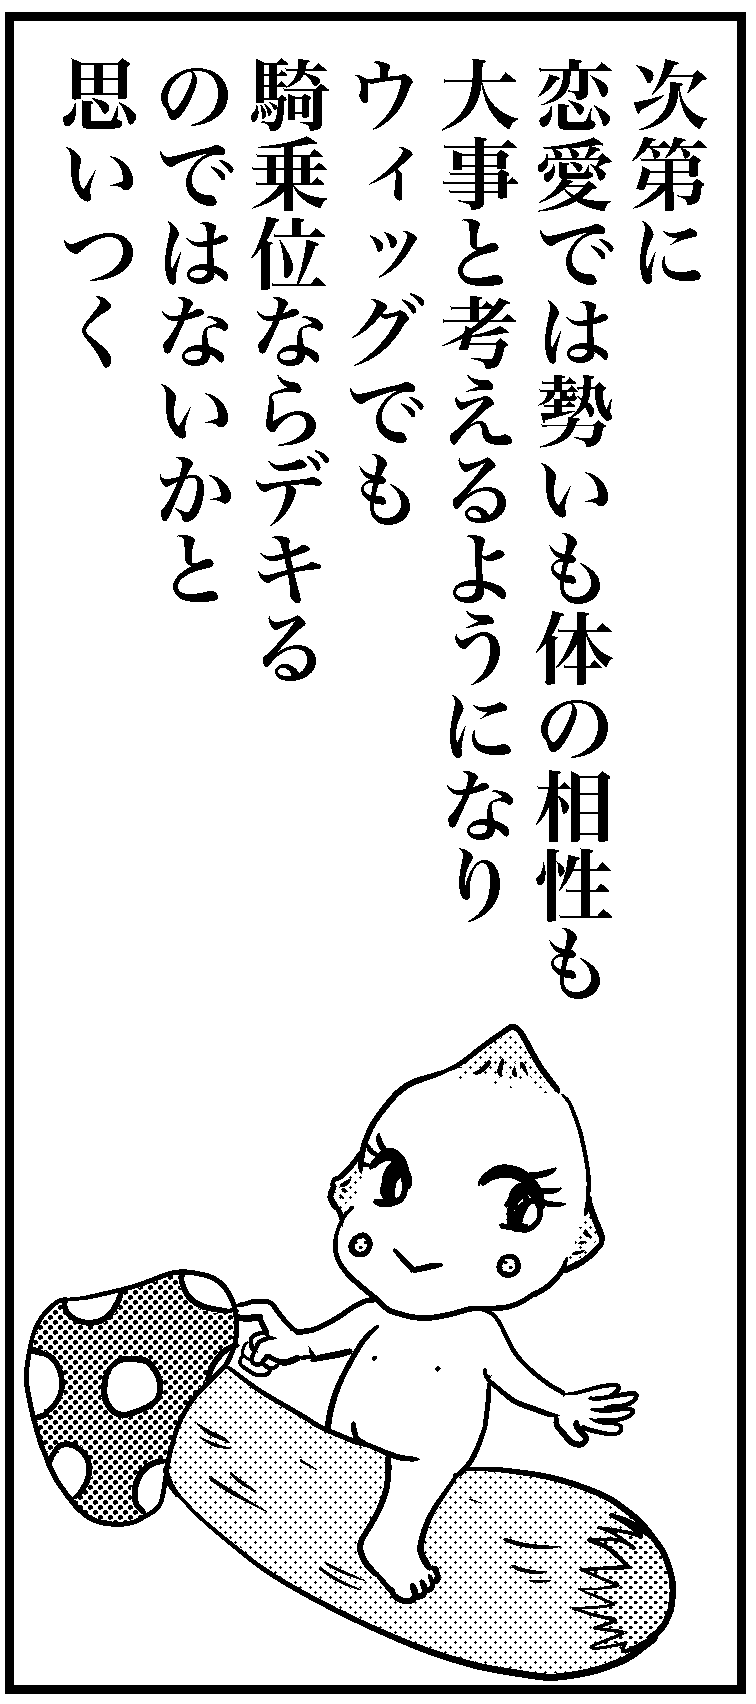 次第に
恋愛では勢いも体の相性も
大事と考えるようになり
ウィッグでも
騎乗位ならデキる
のではないかと
思いつく